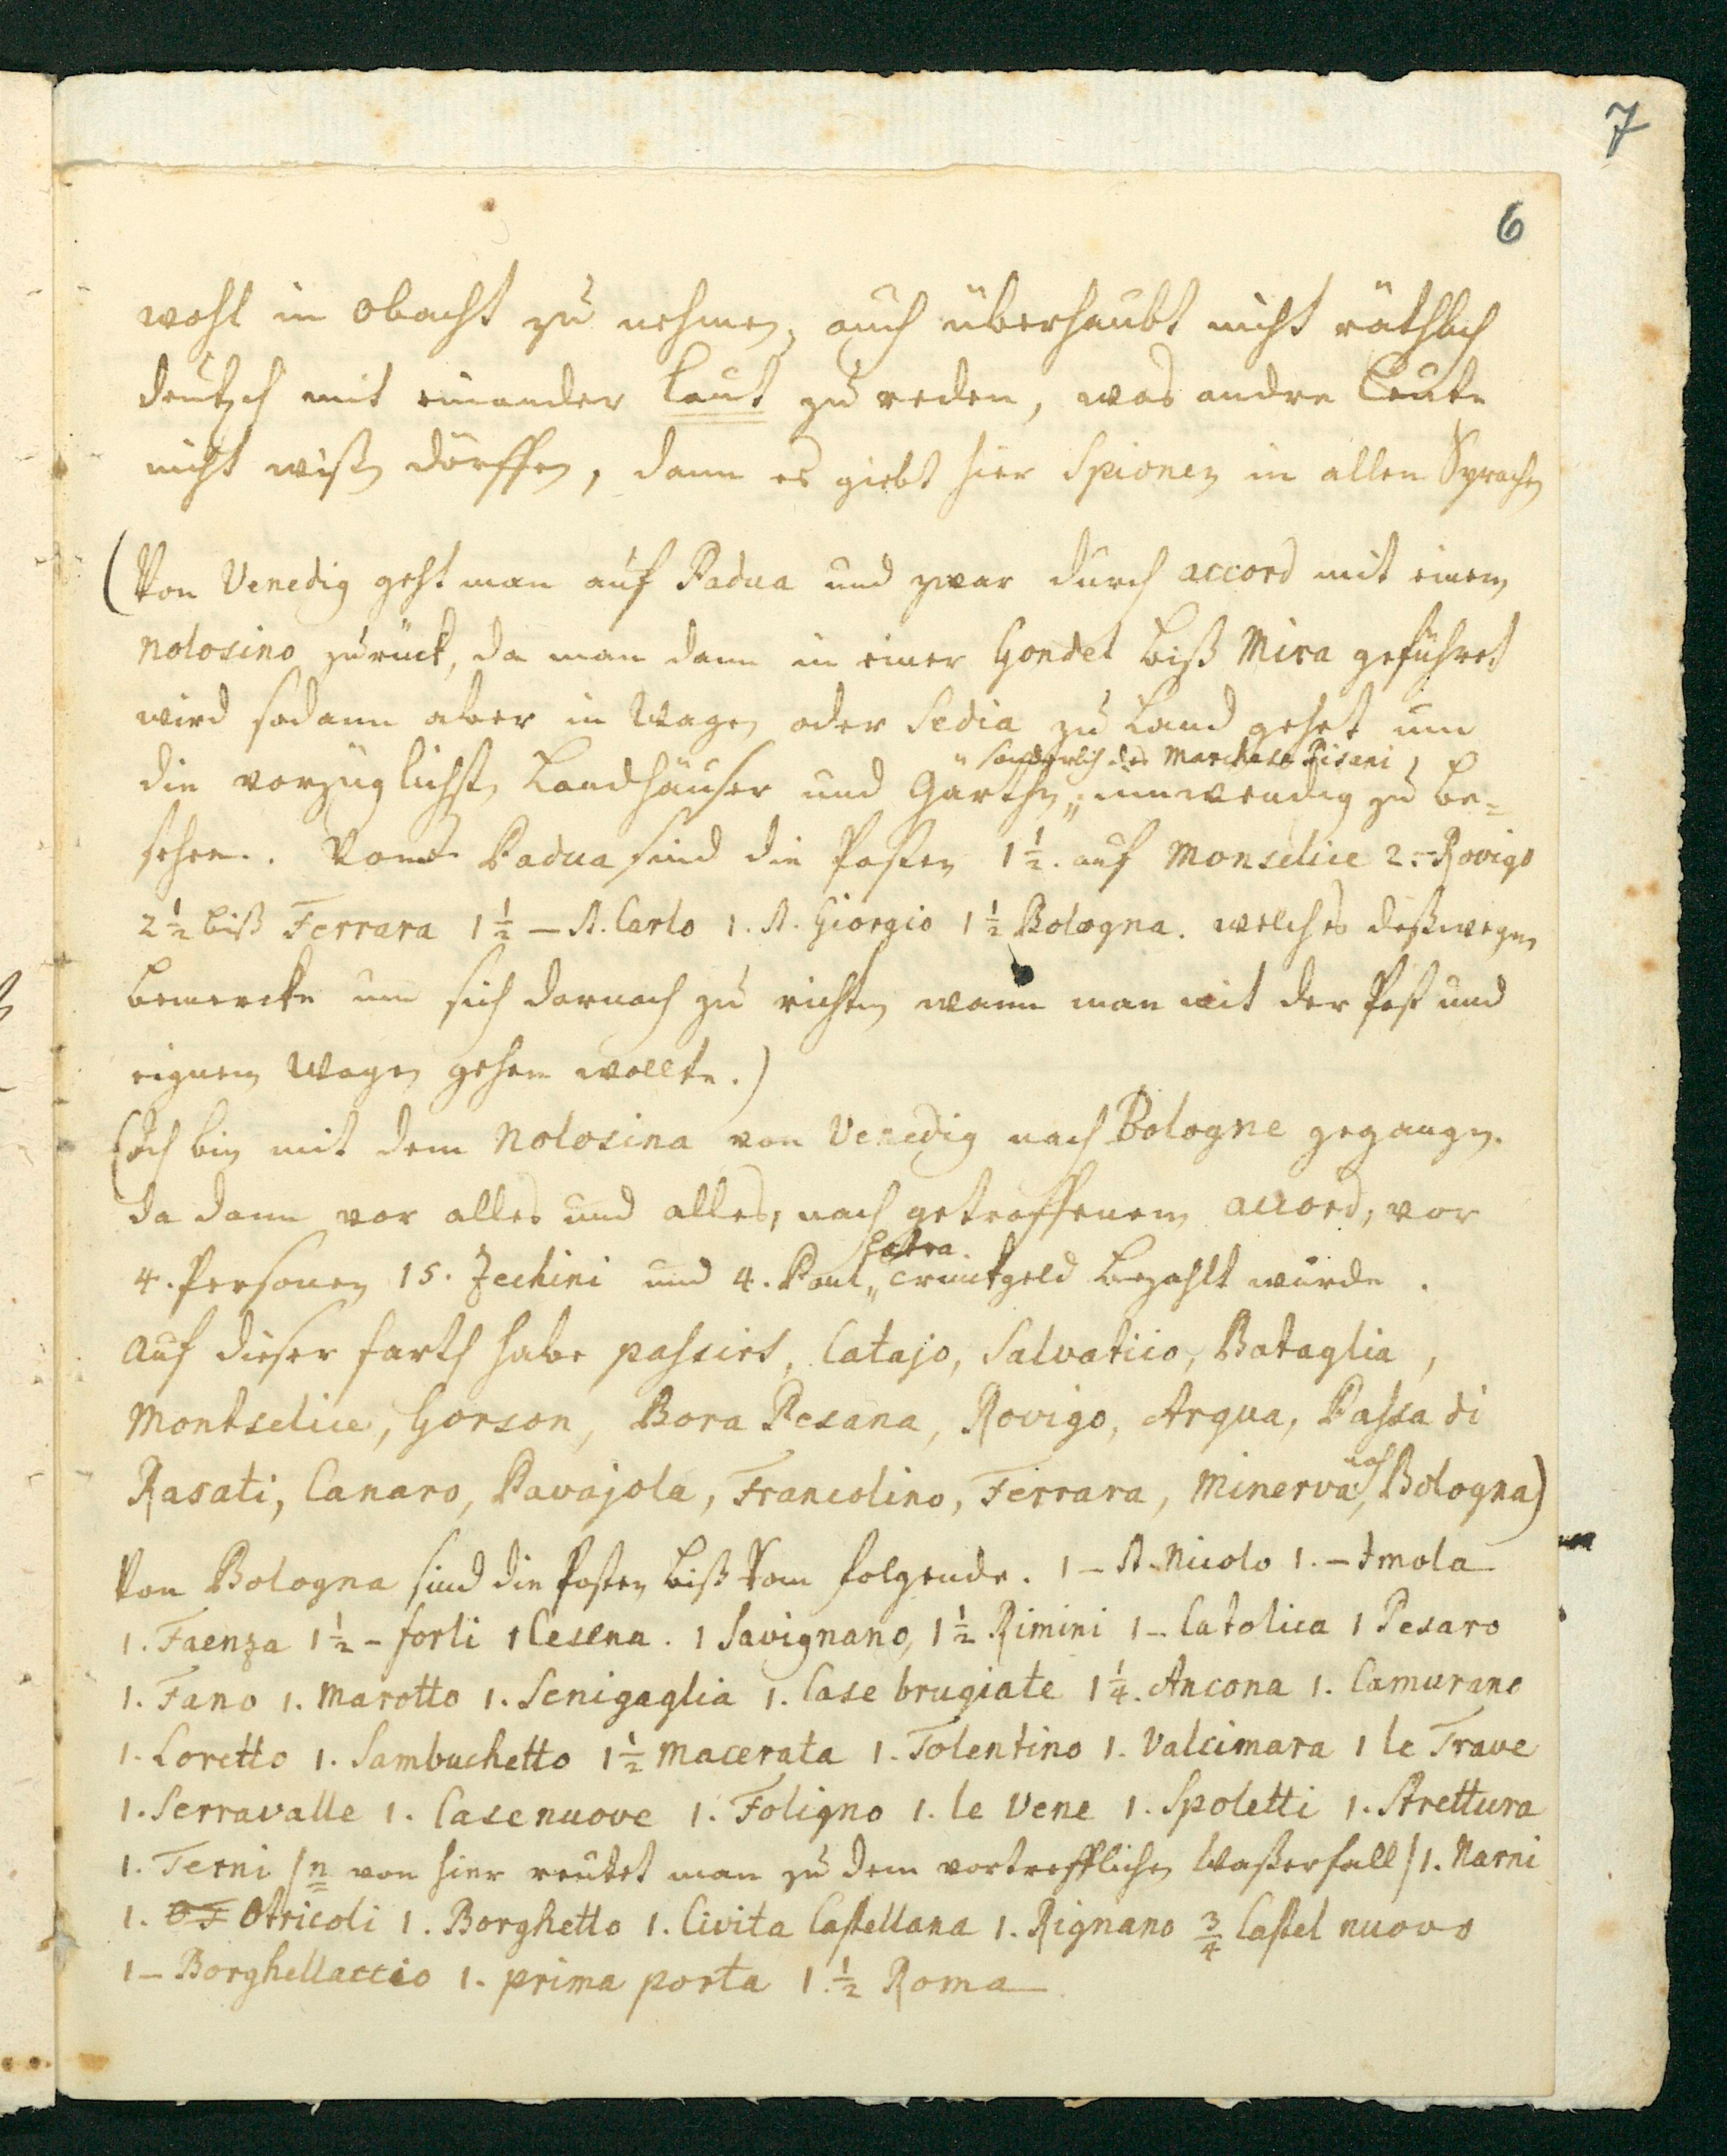 7
6
wohl in obacht zu nehmen, auch überhaubt nicht räthlich
deutsch mit einander laut zu reden, was andre Leute
nicht wißen dörffen, dann es giebt hier Spionen in allen Sprachen
(Von Venedig geht man auf Padua und zwar durch accord mit einem
Nolosino zurück, da man dann in einer Gondel biß Mira geführet
wird sodann aber in Wagen oder Sedia zu Land gehet um
" sonderlich des Marchese Pisani
die vorzüglichsten Landhäuser und Garthen,, innwendig zu be-
sehen. Von Padua sind die Posten 1½. auf Monselice 2.- Rovigo
2½ biß Ferrara 1½ – S. Carlo 1. S. Giorgio 1½ Bologna. welches deßwegen
bemercke um sich darnach zu richten wann man mit der Post und
eignem Wagen gehen wollte.)
(Ich bin mit dem Nolosina von Venedig nach Bologne gegangen.
da dann vor alles und alles, nach getroffenem accord, vor
Extra.
4. Personen 15. Zechini und 4. Paul,, Trinckgeld bezahlt wurde.
Auf dieser farth habe passirt, Catajo, Salvatico, Bataglia,
Montselice, Gorson, Bora Pesana, Rovigo, Arqua, Passa di
Rasati, Canaro, Pavajola, Francolino, Ferrara, Minerva, nach Bologna)
Von Bologna sind die Posten biß Rom folgende. 1 – S. Nicolo 1. – Imola
1. Faenza 1½ – forli 1 Cesena. 1 Savignano, 1½ Rimini 1 – Catolica 1 Pesaro
1. Fano 1. Marotto 1. Senigaglia 1. Case brugiate 1¼. Ancona 1. Camurano
1. Loretto 1. Sambuchetto 1½ Macerata 1. Tolentino 1. Valcimara 1 le Trave
1. Serravalle 1. Casenuove 1. Foligno 1. le Vene 1. Spoletti 1. Strettura
1. Terni /n von hier reutet man zu dem vortrefflichen Waßerfall/ 1. Narni
1. Otricoli 1. Borghetto 1. Civita Castellana 1. Rignano ¾ Castel nuovo
1 – Borghellaccio 1. prima porta 1.½ Roma